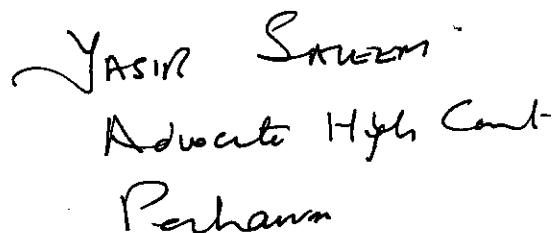 YASIR SALEEM
Advocate High Court
Peshawar